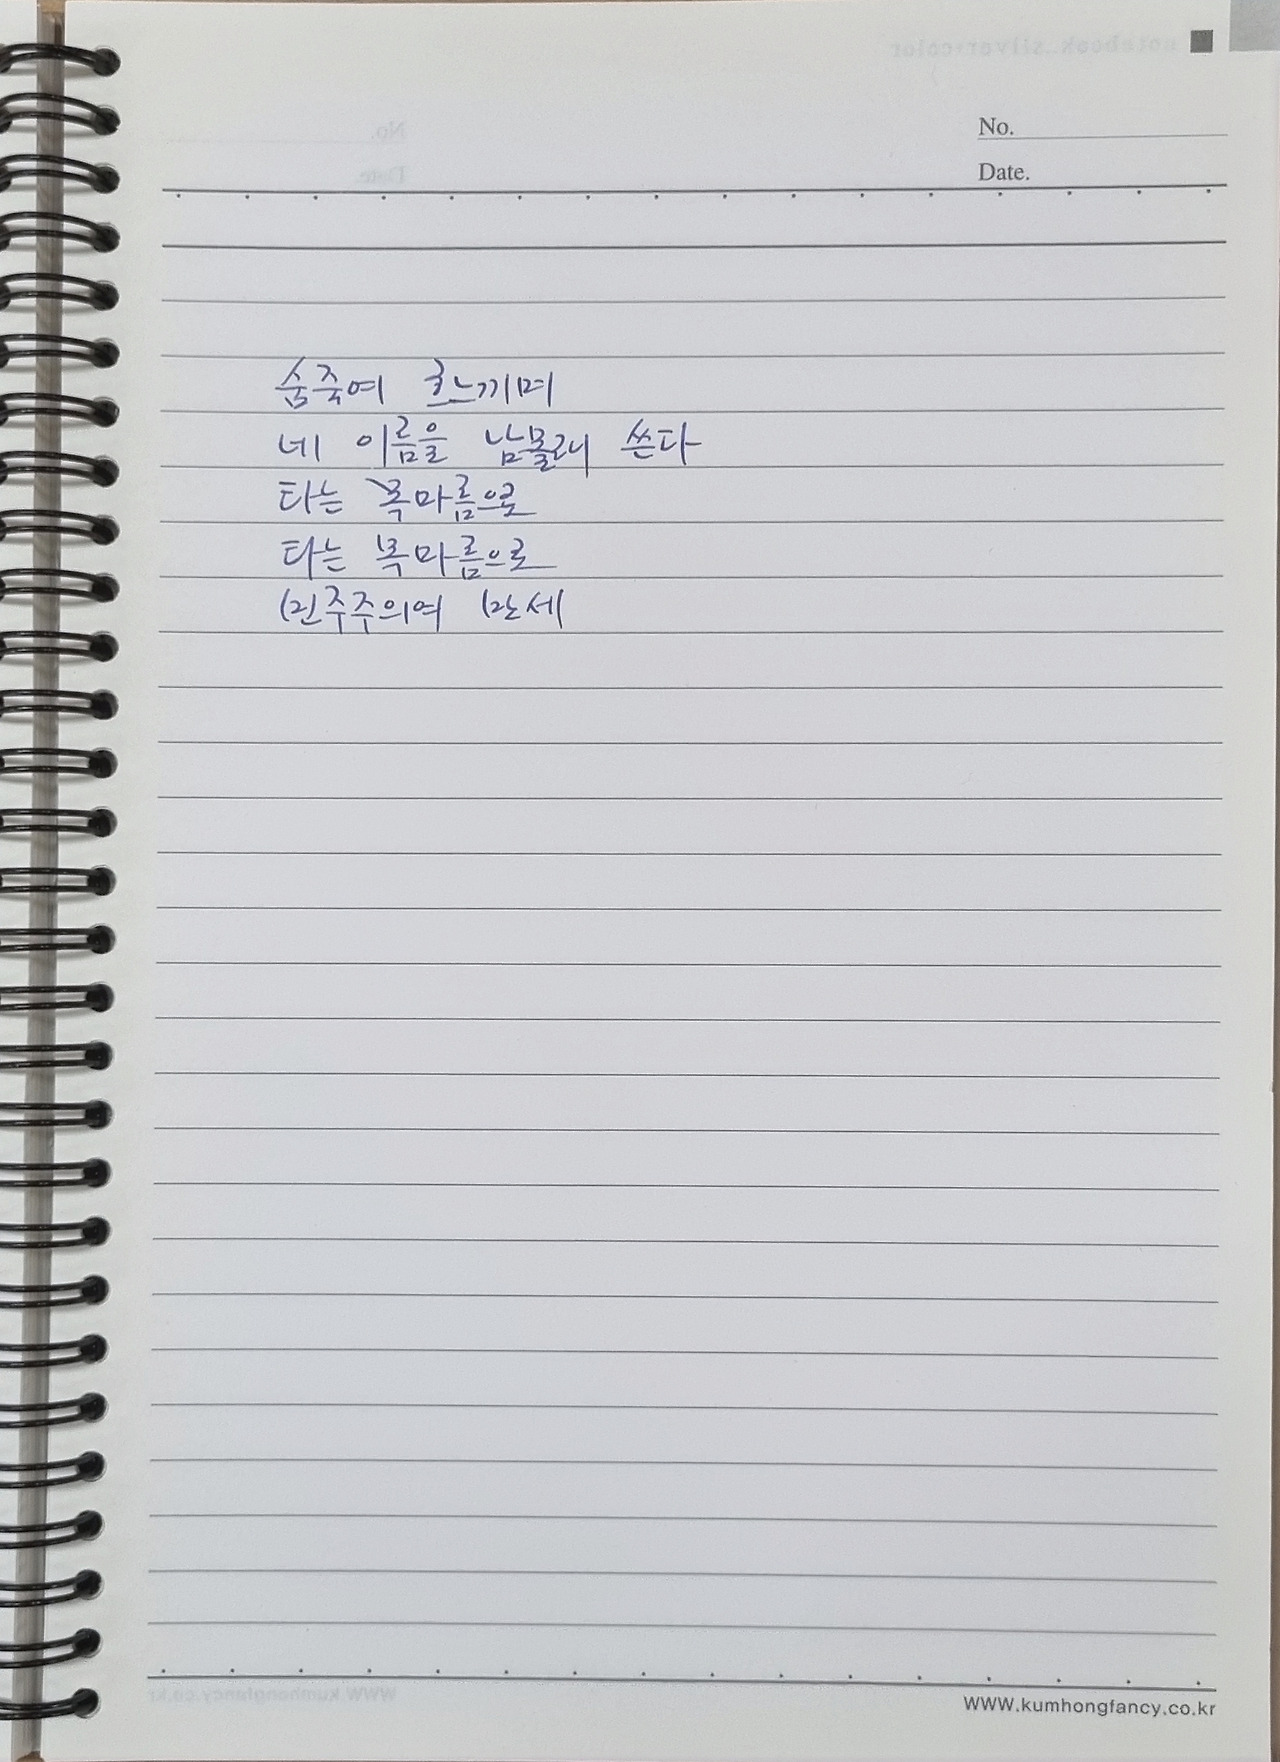 notebook silver+color
No.
Date.
숨죽여 흐느끼며
네 이름을 남몰래 쓴다
타는 목마름으로
타는 목마름으로
민주주의여 만세
WWW.kumhongfancy.co.kr